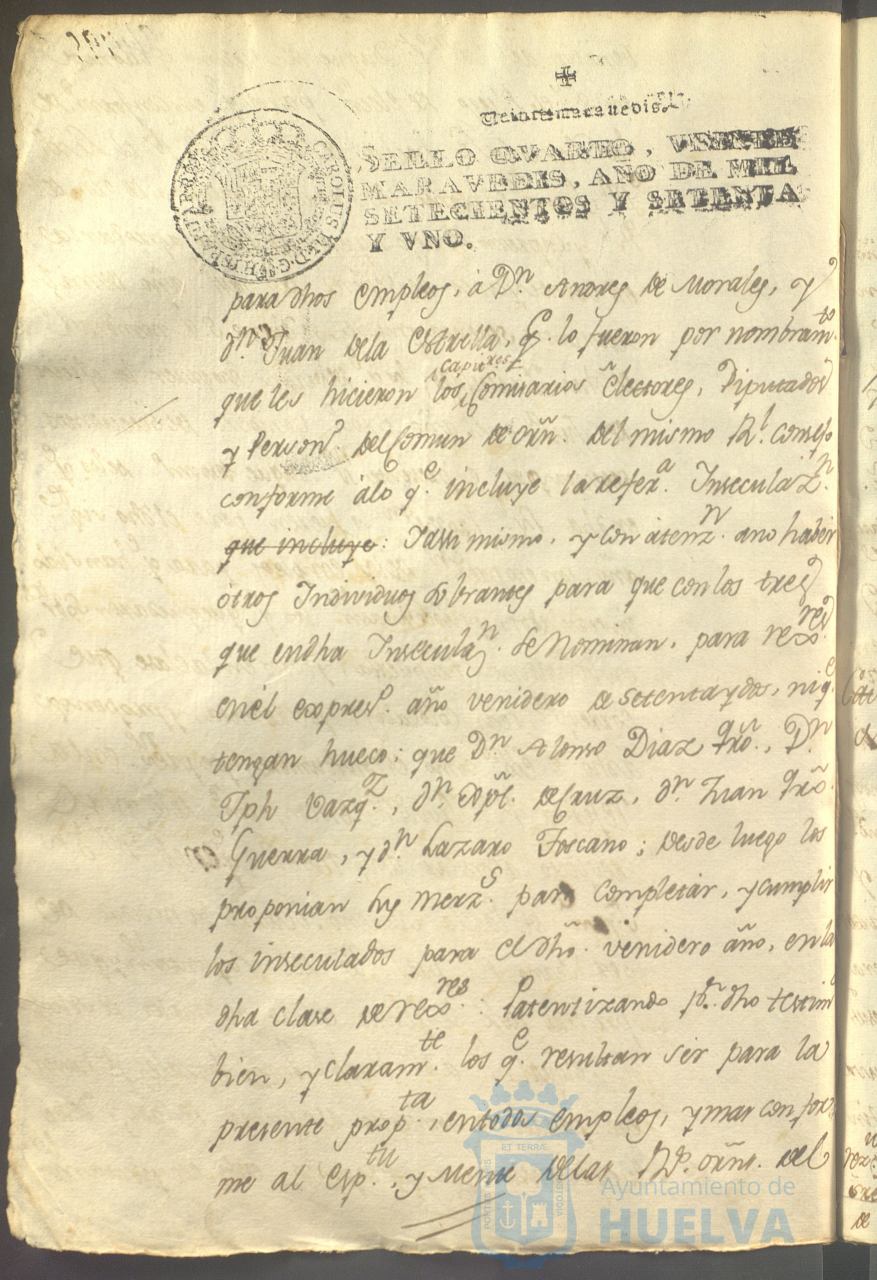 ✠
Veinte maravedis.
SELLO QVARTO, VEINTE
MARAVEDIS, AÑO DE MIL
SETECIENTOS Y SETENTA
Y VNO.
CAROLUS III D G HISPANIAR REX
para dhos empleos, à Dn. Andres de Morales, y
dn. Juan dela Estrella, q. lo fueron por nombramto.
que les hicieron los capures. Comisarios electores, Diputados
y Person. del Comun de orn. del mismo Rl. consejo
conforme álo qe. incluye la refera. Inseculazn.
que incluye: Y assi mismo, y con atenzn. ano haber
otros Individuos sobrantes para que con los tres
que endha Inseculazn. se Nominan, para rexres.
en el expresa. año venidero de setenta y dos, ni qe.
tengan hueco; que Dn. Alonso Diaz qro., Dn.
Jph Vazqz., dn. Xptl. de Cruz, dn. Juan qro.
Guerra, y dn. Lazaro Toscano; desde luego los
proponian sus merzs. para completar, y cumplir
los inseculados para el dho. venidero año, en la
dha clase de rexres.: Patentizando pr. dho testim
bien, y claramte. los qe. resultan ser para la
presente propta., en todos empleos, y mas confor
me al esptu., y Mente delas Rs. orns. del
ET TERRÆ
PORTUS MARIS
CUSTODIA
Ayuntamiento de
HUELVA